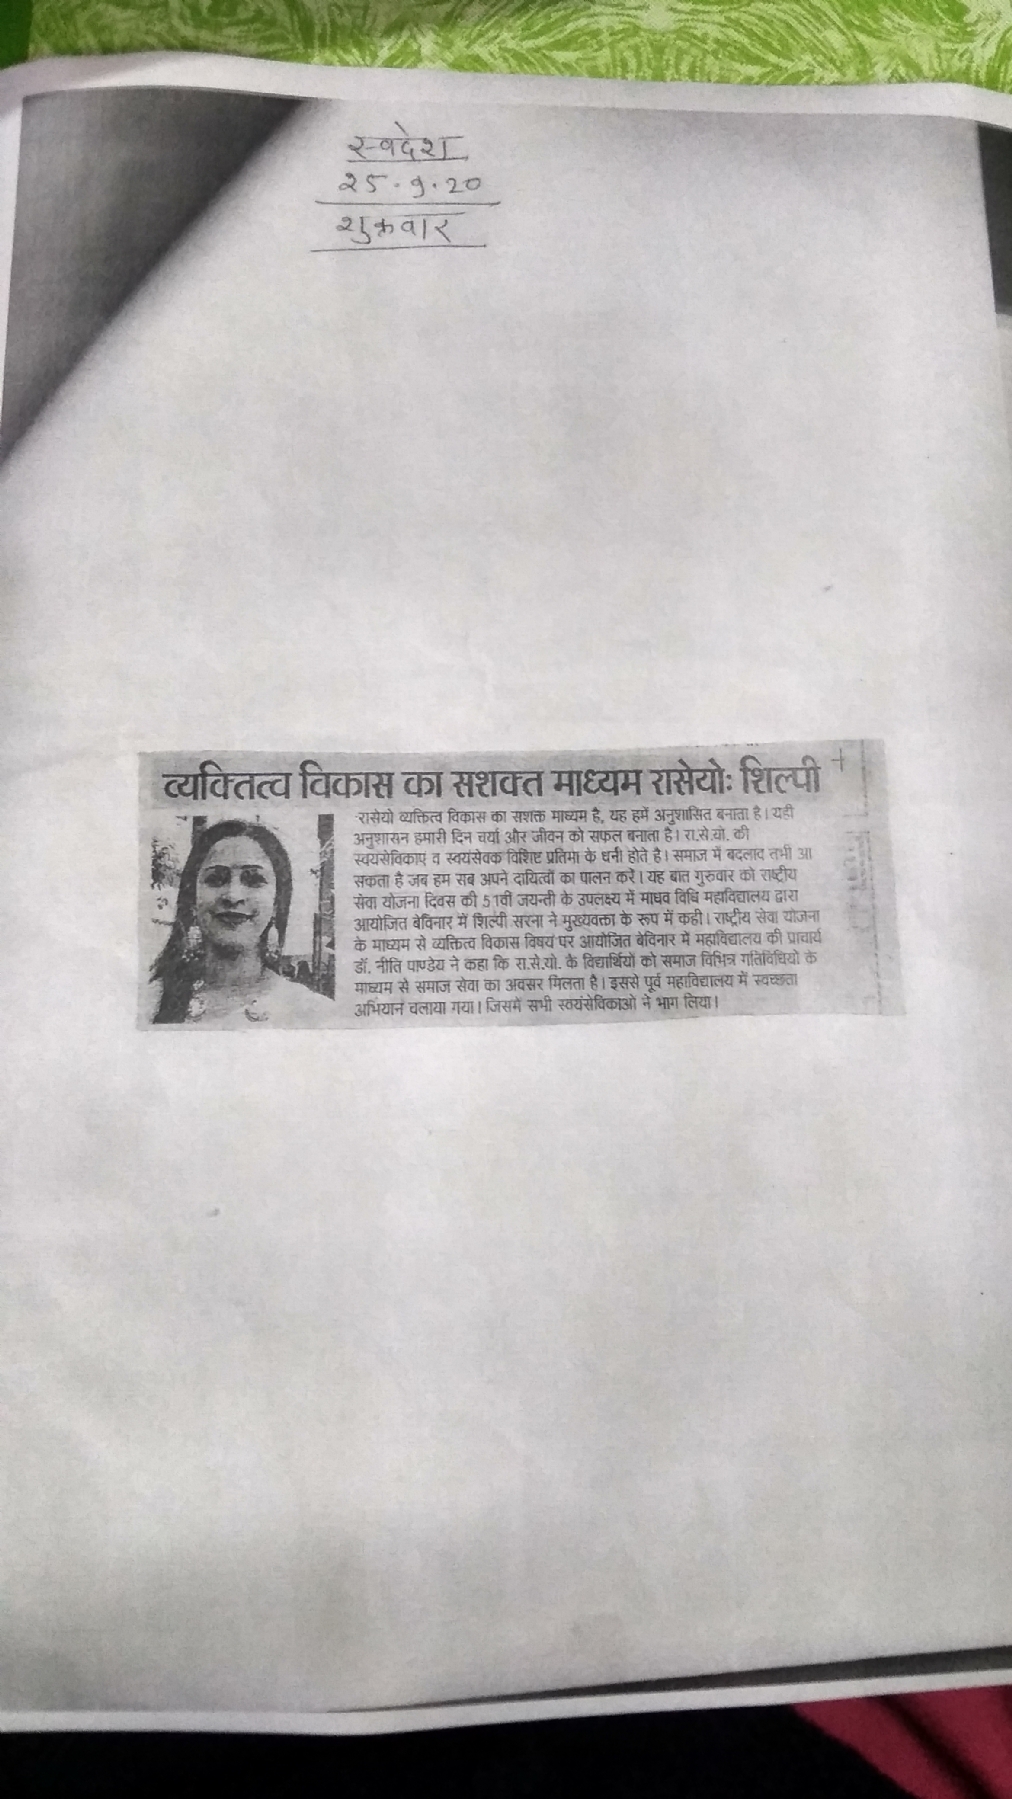 स्वदेश
25.9.20
शुक्रवार
व्यक्तित्व विकास का सशक्त माध्यम रासेयोः शिल्पी
रासेयो व्यक्तित्व विकास का सशक्त माध्यम है, यह हमें अनुशासित बनाता है। यही
अनुशासन हमारी दिन चर्या और जीवन को सफल बनाता है। रा.से.यो. की
स्वयंसेविकाएं व स्वयंसेवक विशिष्ट प्रतिभा के धनी होते है। समाज में बदलाव तभी आ
सकता है जब हम सब अपने दायित्वों का पालन करें। यह बात गुरुवार को राष्ट्रीय
सेवा योजना दिवस की 51वीं जयन्ती के उपलक्ष्य में माधव विधि महाविद्यालय द्वारा
आयोजित बेविनार में शिल्पी सरना ने मुख्यवक्ता के रूप में कही। राष्ट्रीय सेवा योजना
के माध्यम से व्यक्तित्व विकास विषय पर आयोजित बेविनार में महाविद्यालय की प्राचार्य
डॉ. नीति पाण्डेय ने कहा कि रा.से.यो. के विद्यार्थियों को समाज विभिन्न गतिविधियों के
माध्यम से समाज सेवा का अवसर मिलता है। इससे पूर्व महाविद्यालय में स्वच्छता
अभियान चलाया गया। जिसमें सभी स्वयंसेविकाओं ने भाग लिया।